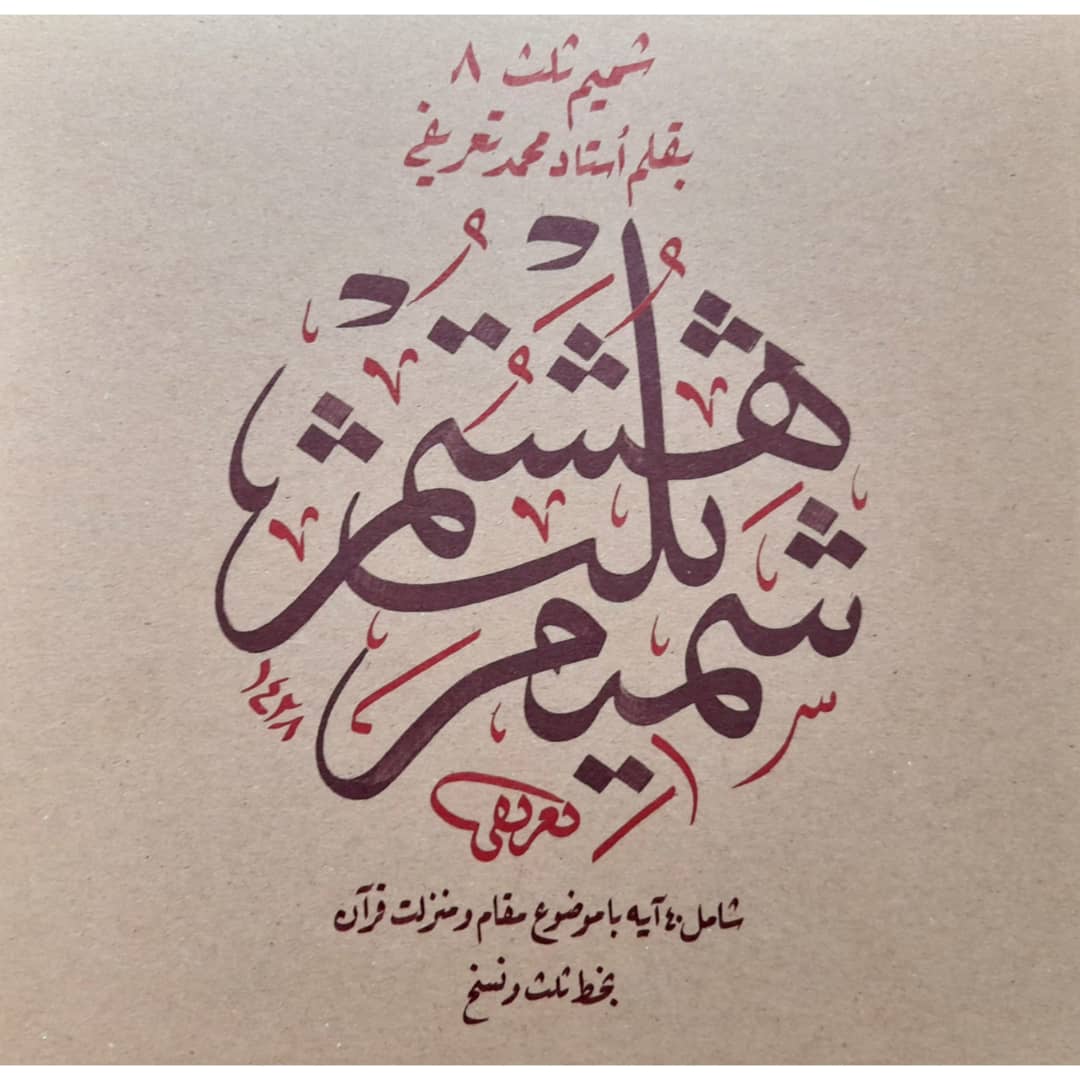 شمیم ثلث ۸
بقلم أستاد محمد تعریفي
شمیم ثلث هشتم
۱٤۳۸
تعریفی
شامل ٤۰ آیه با موضوع مقام و منزلت قرآن
بخط ثلث و نسخ